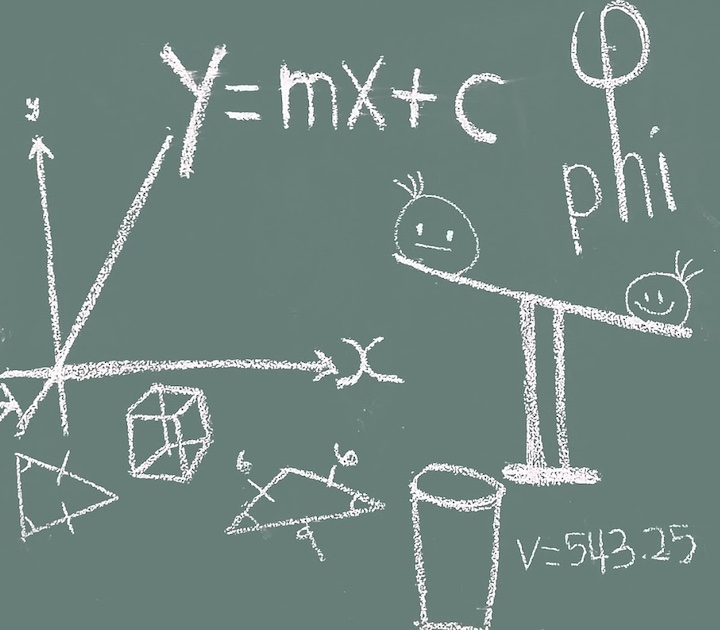 y=mx+c
φ
phi
y
x
6 6
9
v=543.25